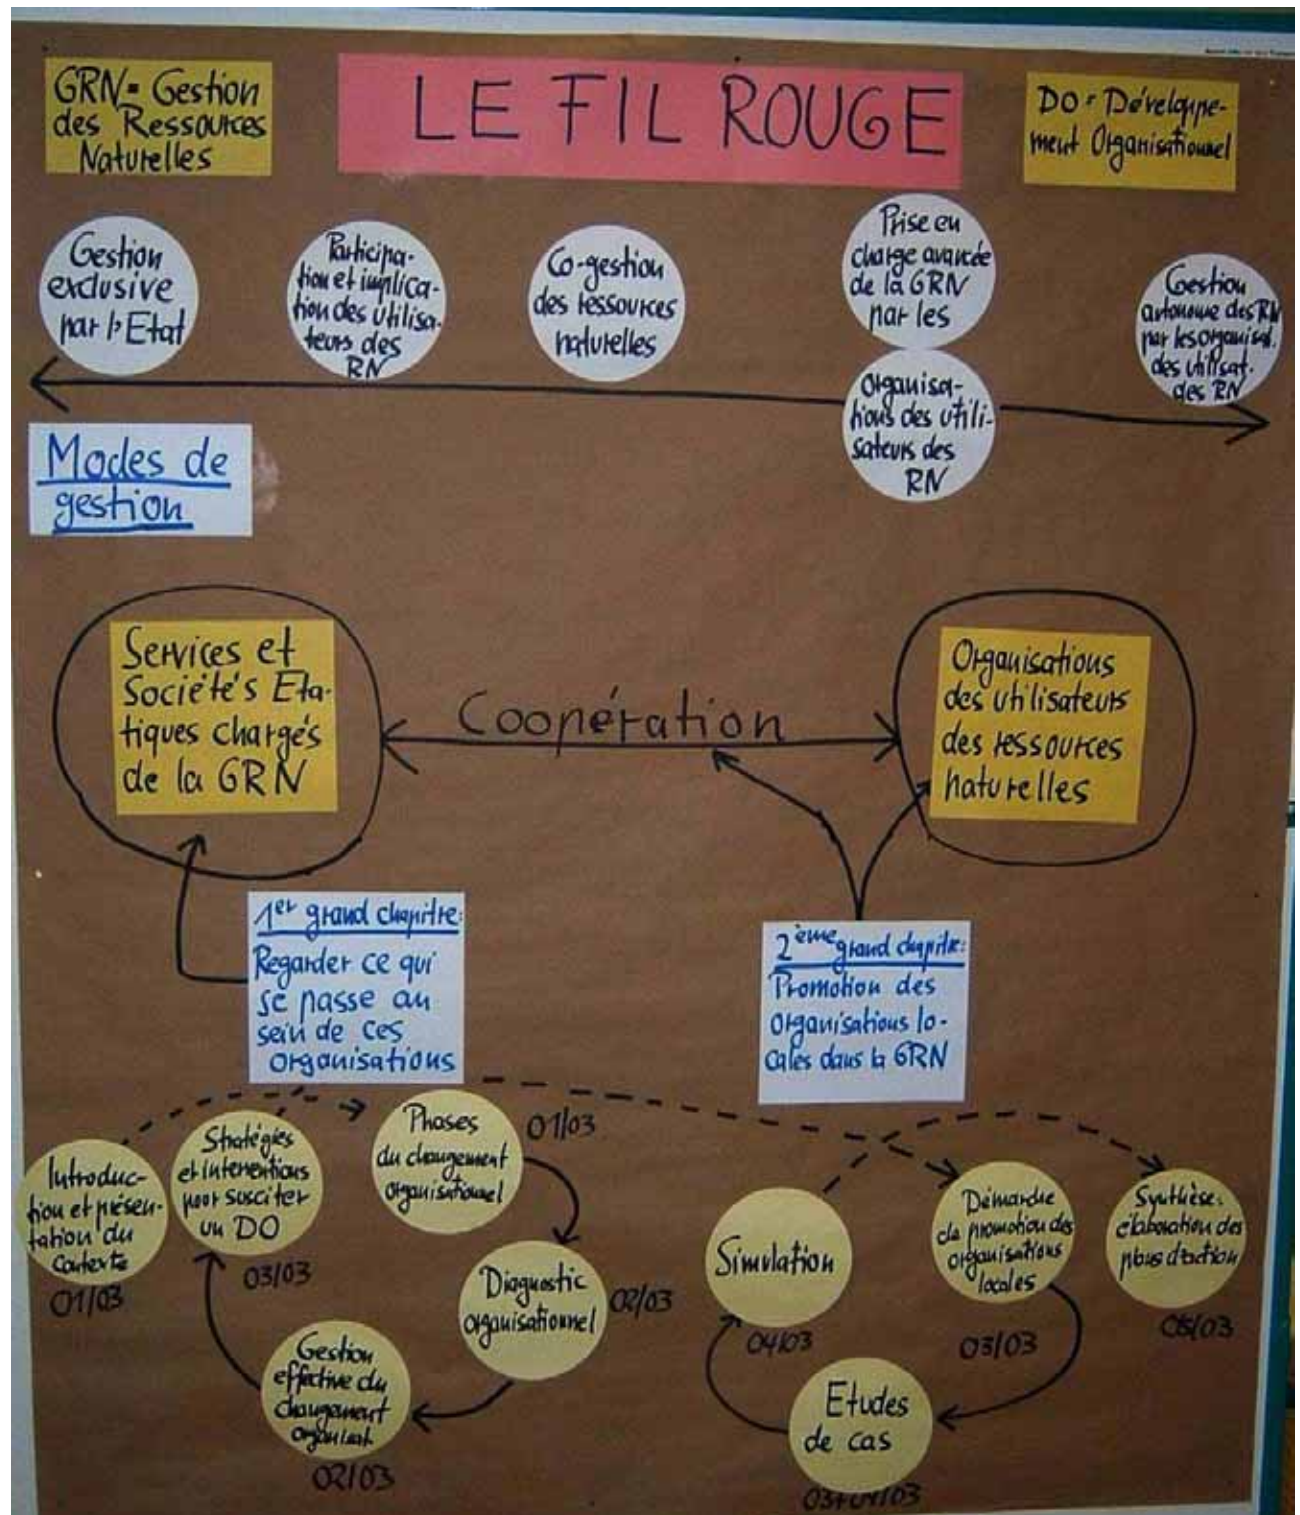 GRN = Gestion
des Ressources
Naturelles
LE FIL ROUGE
DO = Développe-
ment Organisationnel
Gestion
exclusive
par l'Etat
Participa-
tion et implica-
tion des utilisa-
teurs des
RN
Co-gestion
des ressources
naturelles
Prise en
charge avancée
de la GRN
par les
Organisa-
tions des utili-
sateurs des
RN
Gestion
autonome des RN
par les organisat.
des utilisat.
des RN
Modes de
gestion
Services et
Sociétés Eta-
tiques chargés
de la GRN
Coopération
Organisations
des utilisateurs
des ressources
naturelles
1er grand chapitre:
Regarder ce qui
se passe au
sein de ces
organisations
2ème grand chapitre:
Promotion des
organisations lo-
cales dans la GRN
Introduc-
tion et présen-
tation du
contexte
01/03
Stratégies
et interventions
pour susciter
un DO
03/03
Phases
du changement
organisationnel
01/03
Diagnostic
organisationnel
02/03
Gestion
effective du
changement
organisat.
02/03
Simulation
04/03
Démarche
de promotion des
organisations
locales
03/03
Etudes
de cas
03+04/03
Synthèse:
élaboration des
plans d'action
05/03